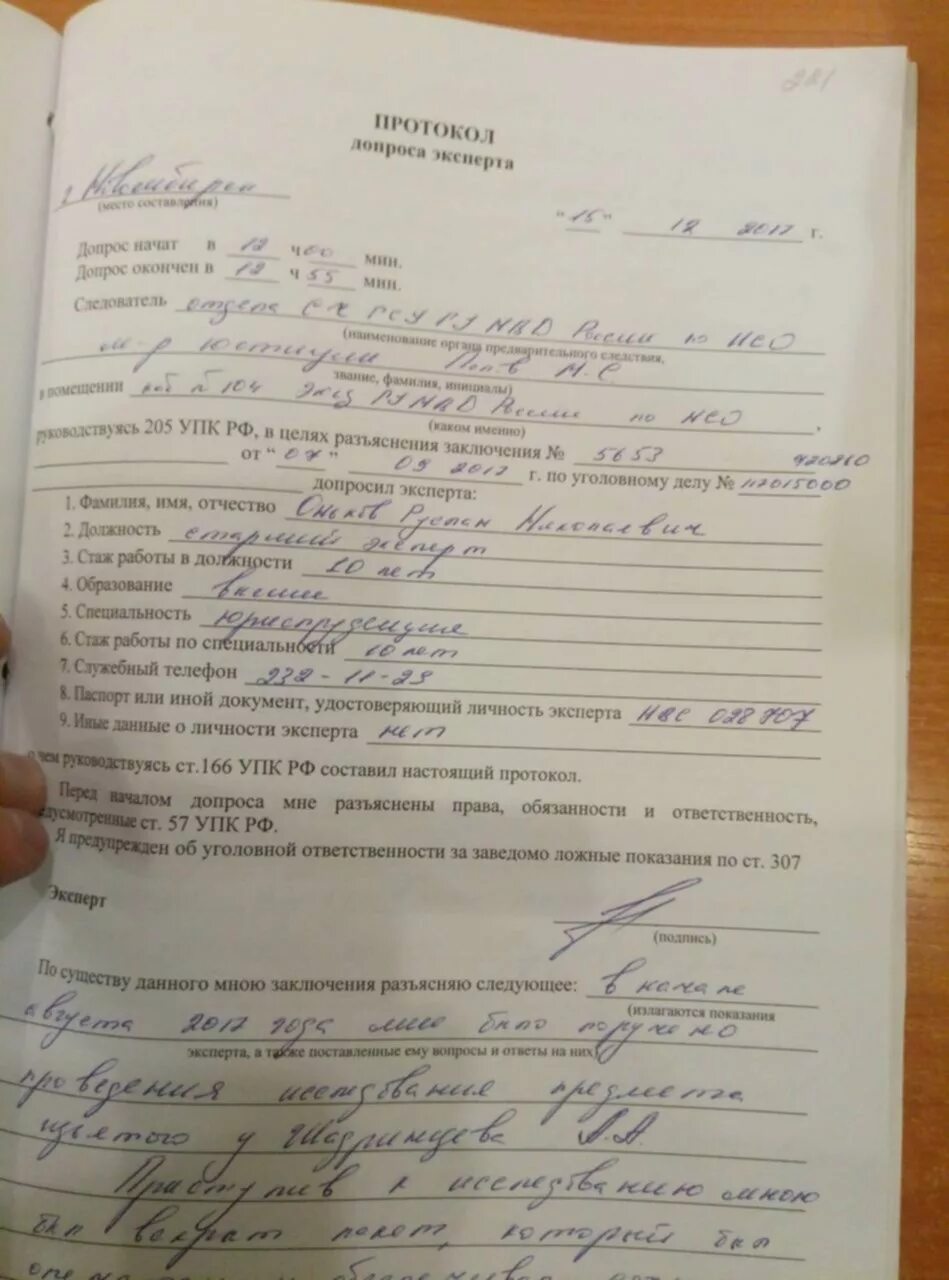 281
ПРОТОКОЛ
допроса эксперта
г Новосибирск
(место составления)
"15" 12 2017 г.
Допрос начат в 12 ч 00 мин.
Допрос окончен в 12 ч 55 мин.
Следователь отдела СЧ ГСУ ГУ МВД России по НСО
(наименование органа предварительного следствия,
м-р юстиции Попов М.С.
звание, фамилия, инициалы)
в помещении каб № 104 ЭКЦ ГУ МВД России по НСО,
(каком именно)
руководствуясь 205 УПК РФ, в целях разъяснения заключения № 5653
от "07" 09 2017 г. по уголовному делу № 117015000
720260
допросил эксперта:
1. Фамилия, имя, отчество Руслан Николаевич
2. Должность старший эксперт
3. Стаж работы в должности 10 лет
4. Образование высшее
5. Специальность юриспруденция
6. Стаж работы по специальности 10 лет
7. Служебный телефон 232-11-23
8. Паспорт или иной документ, удостоверяющий личность эксперта НВС 028707
9. Иные данные о личности эксперта нет
о чем руководствуясь ст.166 УПК РФ составил настоящий протокол.
Перед началом допроса мне разъяснены права, обязанности и ответственность,
едусмотренные ст. 57 УПК РФ.
Я предупрежден об уголовной ответственности за заведомо ложные показания по ст. 307
Эксперт
(подпись)
По существу данного мною заключения разъясняю следующее: в начале
(излагаются показания
августа 2017 года мне было поручено
эксперта, а также поставленные ему вопросы и ответы на них)
проведения исследования предмета
изъятого у Шадринцева А.А.
Приступив к исследованию мною
был вскрыт пакет, который был